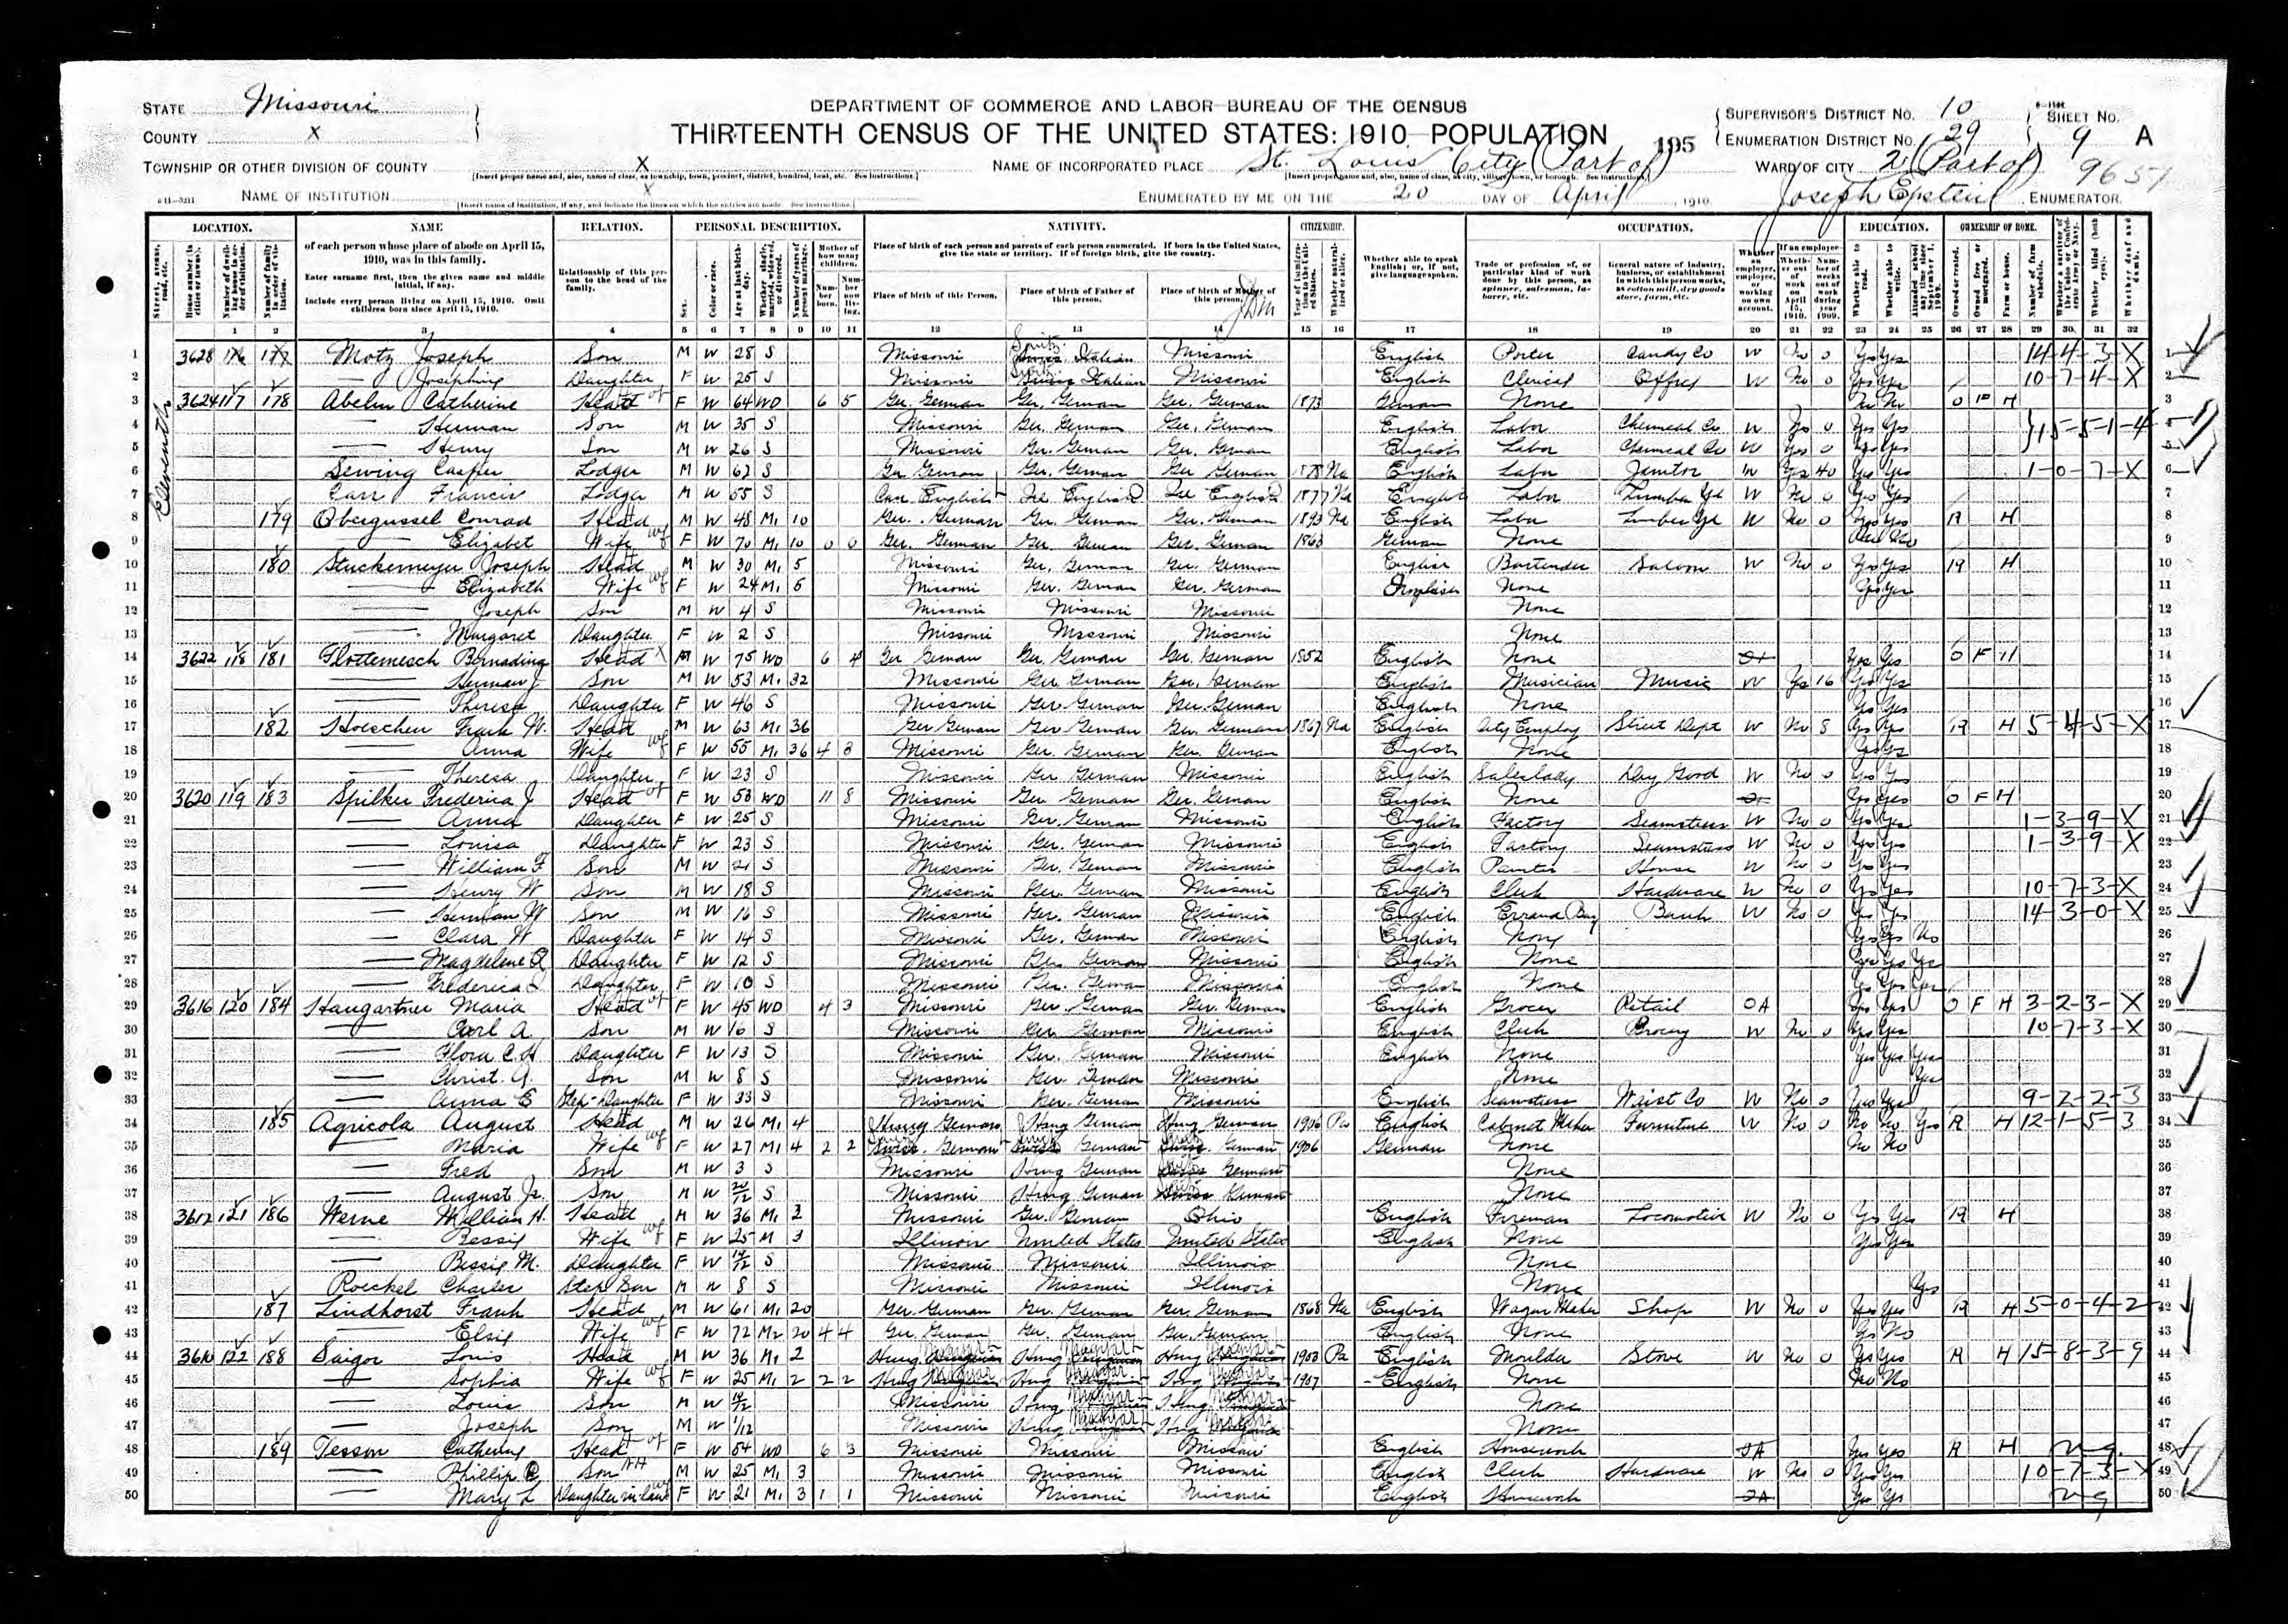 STATE Missouri
COUNTY X
TOWNSHIP OR OTHER DIVISION OF COUNTY X
[Insert proper name and, also, name of class, as township, town, precinct, district, hundred, beat, etc. See instructions.]
NAME OF INSTITUTION X
[Insert name of institution, if any, and indicate the lines on which the entries are made. See instructions.]
DEPARTMENT OF COMMERCE AND LABOR-BUREAU OF THE CENSUS
THIRTEENTH CENSUS OF THE UNITED STATES: 1910 POPULATION
195
NAME OF INCORPORATED PLACE St. Louis City (Part of)
ENUMERATED BY ME ON THE 20 DAY OF April, 1910.
SUPERVISOR'S DISTRICT NO. 10
ENUMERATION DISTRICT NO. 29
SHEET NO. 9 A
WARD OF CITY 2 (Part of)
9651
Joseph Epstein, ENUMERATOR.
LOCATION. NAME RELATION. PERSONAL DESCRIPTION. NATIVITY. CITIZENSHIP. OCCUPATION. EDUCATION. OWNERSHIP OF HOME.
of each person whose place of abode on April 15, 1910, was in this family.
Enter surname first, then the given name and middle initial, if any.
Include every person living on April 15, 1910. Omit children born since April 15, 1910.
Relationship of this person to the head of the family.
Place of birth of each person and parents of each person enumerated. If born in the United States, give the state or territory. If of foreign birth, give the country.
Place of birth of this Person. Place of birth of Father of this person. Place of birth of Mother of this person.
Whether able to speak English; or, if not, give language spoken.
Trade or profession of, or particular kind of work done by this person, as spinner, salesman, laborer, etc.
General nature of industry, business, or establishment in which this person works, as cotton mill, dry goods store, farm, etc.
Eleventh
1 3628 116 177 Motz Joseph Son M W 28 S Missouri Italian Missouri English Porter Candy Co W No 0 Yes Yes 14-4-3-X
2 Josephine Daughter F W 25 S Missouri Italian Missouri English Clerical Office W No 0 Yes Yes 10-7-4-X
3 3624 117 178 Abeln Catherine Head F W 64 WD 6 5 Ger. German Ger. German Ger. German 1873 German None No No O F H
4 Herman Son M W 35 S Missouri Ger. German Ger. German English Labor Chemical Co W Yes 0 Yes Yes 15-5-1-4
5 Henry Son M W 26 S Missouri Ger. German Ger. German English Labor Chemical Co W Yes 0 Yes Yes
6 Sewing Casper Lodger M W 62 S Ger German Ger. German Ger German 1878 Na English Labor Janitor W Yes 40 Yes Yes 1-0-7-X
7 Carr Francis Lodger M W 55 S Can. English Ire English Ire English 1877 Na English Labor Lumber Yd W No 0 Yes Yes
8 179 Obergussel Conrad Head M W 48 M1 10 Ger. German Ger. German Ger. German 1893 Na English Labor Lumber Yd W No 0 Yes Yes R H
9 Elizabet Wife F W 70 M1 10 0 0 Ger. German Ger. German Ger. German 1863 German None No
10 180 Stuckemeyer Joseph Head M W 30 M1 5 Missouri Ger. German Ger. German English Bartender Saloon W No 0 Yes Yes R H
11 Elizabeth Wife F W 24 M1 5 Missouri Ger. German Ger. German English None Yes Yes
12 Joseph Son M W 4 S Missouri Missouri Missouri None
13 Margaret Daughter F W 2 S Missouri Missouri Missouri None
14 3622 118 181 Flottemesch Bernadina Head X M W 75 WD 6 4 Ger German Ger. German Ger. German 1852 English None Yes Yes O F H
15 Herman J. Son M W 53 M1 32 Missouri Ger. German Ger. German English Musician Music W Ys 16 Yes Yes
16 Theresa Daughter F W 46 S Missouri Ger. German Ger. German English None Yes Yes
17 182 Hoeschen Frank W. Head M W 63 M1 36 Ger German Ger German Ger. German 1867 Na English City Employ Street Dept W No 8 Yes Yes R H 5-4-5-X
18 Anna Wife F W 55 M1 36 4 3 Missouri Ger. German Ger. German English None Yes Yes
19 Theresa Daughter F W 23 S Missouri Ger German Missouri English Saleslady Dry Good W No 0 Yes Yes
20 3620 119 183 Spilker Frederica J Head F W 53 WD 11 8 Missouri Ger. German Ger. German English None Yes Yes O F H
21 Anna Daughter F W 25 S Missouri Ger. German Missouri English Factory Seamstress W No 0 Yes Yes 1-3-9-X
22 Louisa Daughter F W 23 S Missouri Ger. German Missouri English Factory Seamstress W No 0 Yes Yes 1-3-9-X
23 William F Son M W 21 S Missouri Ger. German Missouri English Painter House W No 0 Yes Yes
24 Henry W Son M W 18 S Missouri Ger. German Missouri English Clerk Hardware W No 0 Yes Yes 10-7-3-X
25 Herman W Son M W 16 S Missouri Ger. German Missouri English Errand Boy Bank W No 0 Yes Yes 14-3-0-X
26 Clara W Daughter F W 14 S Missouri Ger. German Missouri English None Yes Yes No
27 Magdelene Daughter F W 12 S Missouri Ger. German Missouri English None Yes Yes Yes
28 Frederica Daughter F W 10 S Missouri Ger. German Missouri English None Yes Yes Yes
29 3616 120 184 Haugartner Maria Head F W 45 WD 4 3 Missouri Ger. German Ger. German English Grocer Retail OA Yes Yes O F H 3-2-3-X
30 Carl A. Son M W 16 S Missouri Ger German Missouri English Clerk Grocery W No 0 Yes Yes 10-7-3-X
31 Flora C. Daughter F W 13 S Missouri Ger. German Missouri English None Yes Yes Yes
32 Christ. A. Son M W 8 S Missouri Ger German Missouri None Yes
33 Anna E Step-Daughter F W 33 S Missouri Ger. German Missouri English Seamstress Waist Co W No 0 Yes Yes 9-2-2-3
34 185 Agricola August Head M W 26 M1 4 Hung German Hung German Hung German 1906 Pa English Cabinet Maker Furniture W No 0 No No Yes R H 12-1-5-3
35 Maria Wife F W 27 M1 4 2 2 Swiss. German Swiss German Swiss. German 1906 German None No No
36 Fred Son M W 3 S Missouri Hung German Swiss German None
37 August Jr. Son M W 20/12 S Missouri Hung German Swiss German None
38 3612 121 186 Werne William H. Head M W 36 M1 3 Missouri Ger. German Ohio English Fireman Locomotive W No 0 Yes Yes R H
39 Bessie Wife F W 25 M 3 Illinois United States United States English None Yes Yes
40 Bessie M. Daughter F W S Missouri Missouri Illinois None
41 Roeckel Charles Step Son M W 8 S Missouri Missouri Illinois None Yes
42 187 Lindhorst Frank Head M W 61 M1 20 Ger. German Ger. German Ger. German 1868 Na English Wagon Maker Shop W No 0 Yes Yes R H 5-0-4-2
43 Elsie Wife F W 72 M2 20 4 4 Ger. German Ger. German Ger. German English None Yes No
44 3610 122 188 Saigor Louis Head M W 36 M1 2 Hung Magyar Hung Magyar Hung Magyar 1903 Pa English Moulder Stove W No 0 Yes Yes R H 15-8-3-9
45 Sophia Wife F W 25 M1 2 2 2 Hung Magyar Hung Magyar Hung Magyar 1907 English None No No
46 Louis Son M W Missouri Hung Magyar Hung Magyar None
47 Joseph Son M W 1/12 Missouri Hung Magyar Hung Magyar None
48 189 Tesson Catherine Head F W 54 WD 6 3 Missouri Missouri Missouri English Housework Yes Yes R H
49 Phillip Son M W 25 M1 3 Missouri Missouri Missouri English Clerk Hardware W No 0 Yes Yes 10-7-3-X
50 Mary L Daughter in law F W 21 M1 3 1 1 Missouri Missouri Missouri English Housework Yes Yes